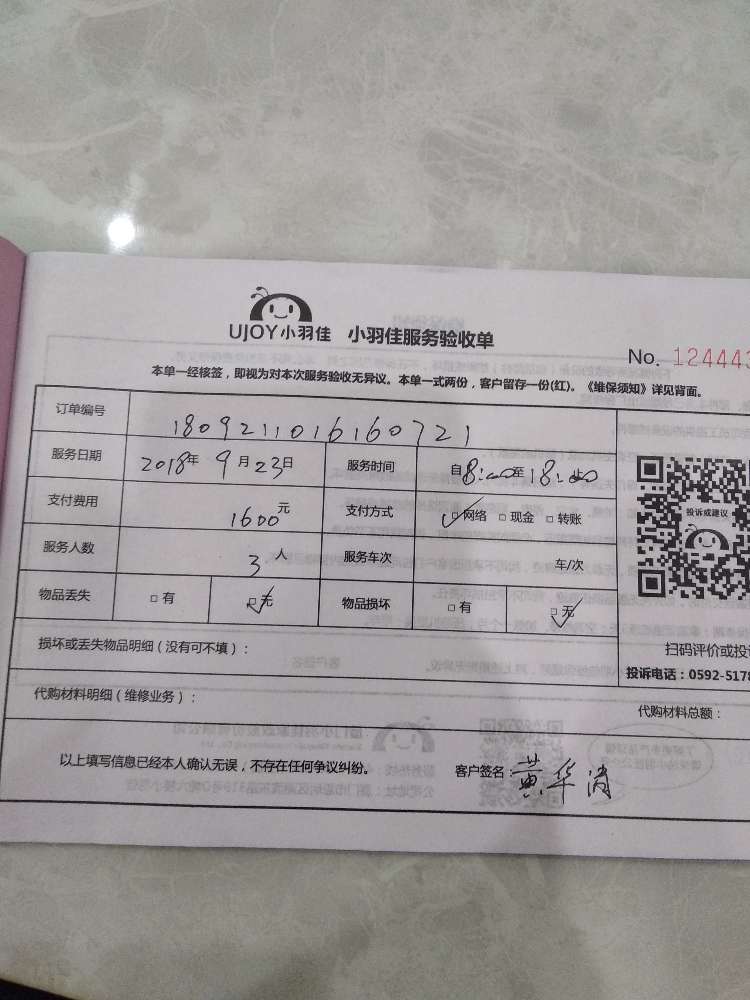 UJOY小羽佳 小羽佳服务验收单
No. 124443
本单一经核签，即视为对本次服务验收无异议。本单一式两份，客户留存一份(红)。《维保须知》详见背面。
订单编号 1809211016160721
服务日期 2018年 9月23日 服务时间 自8:00至18:00止
支付费用 1600元 支付方式 □网络 □现金 □转账
服务人数 3人 服务车次 车/次
物品丢失 □有 □无 物品损坏 □有 □无
投诉或建议
扫码评价或投诉
投诉电话：0592-5178
损坏或丢失物品明细（没有可不填）：
代购材料明细（维修业务）：
代购材料总额：
以上填写信息已经本人确认无误，不存在任何争议纠纷。 客户签名：黄华清